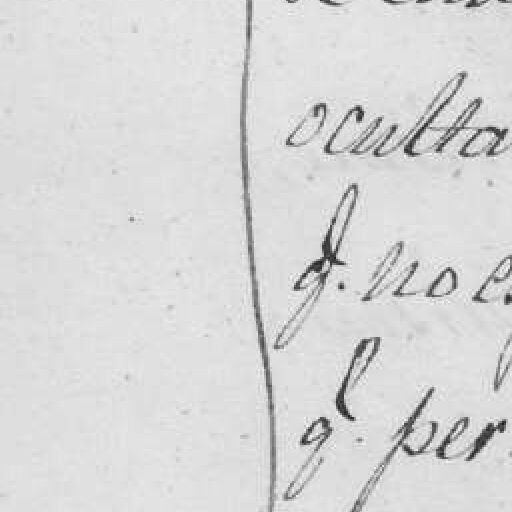 oculta
q. no e
q. per